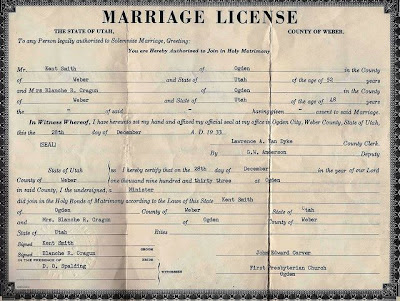 MARRIAGE LICENSE
THE STATE OF UTAH, COUNTY OF WEBER,
To any Person legally authorized to Solemnize Marriage, Greeting:
You are Hereby Authorized to Join in Holy Matrimony
Mr. Kent Smith of Ogden in the County
of Weber and State of Utah of the age of 52 years
and Mrs Blanche R. Cragun of Ogden in the County
of Weber and State of Utah of the age of 48 years
the " of said " having given " consent to said Marriage.
In Witness Whereof, I have hereunto set my hand and affixed my official seal at my office in Ogden City, Weber County, State of Utah,
this 28th day of December A. D. 1933.
(SEAL) Lawrence A. Van Dyke County Clerk
By G.N. Anderson Deputy
State of Utah ss I hereby certify that on the 28th day of December in the year of our Lord
County of Weber one thousand nine hundred and thirty three at Ogden
in said County, I the undersigned, a Minister
did join in the Holy Bonds of Matrimony according to the Laws of this State Kent Smith
of Ogden County of Weber State of Utah
and Mrs. Blanche R. Cragun of Ogden County of Weber
State of Utah Rites
Signed Kent Smith GROOM
Signed Blanche R. Cragun BRIDE John Edward Carver
IN THE PRESENCE OF
D. D. Spalding WITNESSES First Presbyterian Church
Ogden